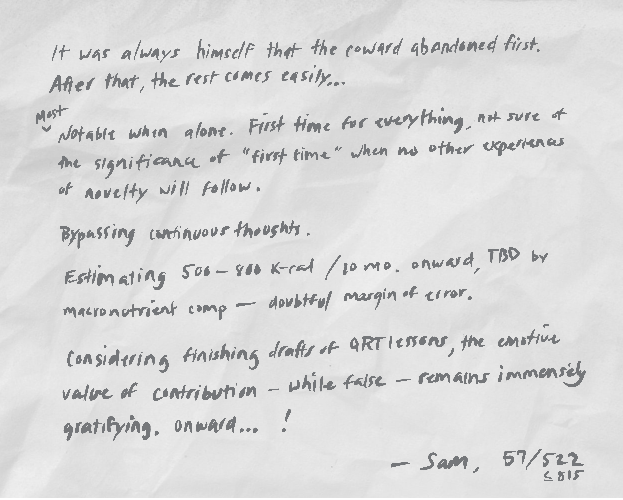 It was always himself that the coward abandoned first.
After that, the rest comes easily...
Most
Notable when alone. First time for everything, not sure of
the significance of "first time" when no other experiences
of novelty will follow.
Bypassing continuous thoughts.
Estimating 500 – 800 K-cal / 10 mo. onward, TBD by
macronutrient comp – doubtful margin of error.
Considering finishing drafts of ART lessons, the emotive
value of contribution – while false – remains immensely
gratifying. onward... !
– Sam, 57/522
≤ 815